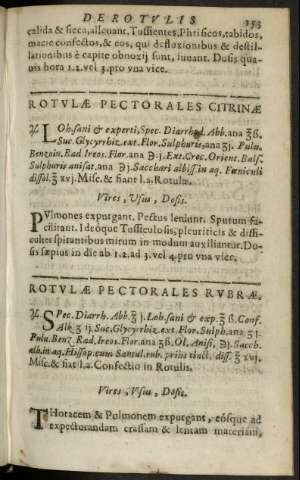 DE ROTVLIS 253
calida & sicca, alleuant. Tussientes, Phtisicos, tabidos,
macie confectos, & eos, qui defluxionibus & destil-
lationibus è capite obnoxij sunt, iuuant. Dosis qua-
uis hora 1.2. vel 3. pro vna vice.
ROTVLÆ PECTORALES CITRINÆ
℞. LOh. sani & experti, Spec. Diarrhod. Abb. ana ʒß.
Suc. Glycyrhiz. ext. Flor. Sulphuris, ana ʒj. Pulu.
Benzoin. Rad. Ireos. Flor. ana ℈j. Ext. Croc. Orient. Bals.
Sulphuris anisat. ana ℈j. Sacchari albiss. in aq. Fœniculi
dissol. ℥ xvj. Misc. & fiant l.a. Rotulæ.
Vires, Vsus, Dosis.
PVlmones expurgant. Pectus leniunt. Sputum fa-
cilitant. Ideoque Tussiculosis, pleuriticis & diffi-
culter spirantibus mirum in modum auxiliantur. Do-
sis sæpius in die ab 1.2. ad 3. vel 4. pro vna vice.
ROTVLÆ PECTORALES RVBRÆ.
℞. SPec. Diarrh. Abb. ʒ j. Loh. sani & exp. ʒ ß. Conf.
Alk. ʒ ij. Suc. Glycyrrhiz. ext. Flor. Sulph. ana ʒ j.
Pulu. Benz. Rad. Ireos. Flor. ana ʒß. Ol. Anisi, ℈j. Sacch.
alb. in aq. Hissop. cum Santal. rub. prius tinct. diss. ℥ xvj.
Misc. & fiat l.a. Confectio in Rotulis.
Vires, Vsus, Dosis.
THoracem & Pulmonem expurgant, eósque ad
expectorandam crassam & lentam materiam,